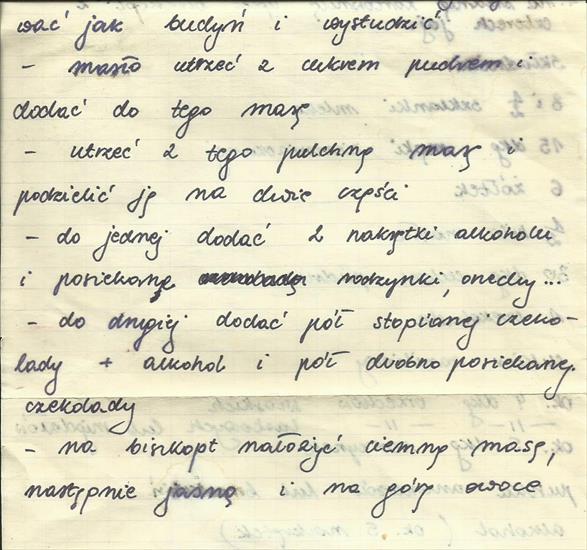 wać jak budyń i wystudzić
- masło utrzeć z cukrem pudrem i
dodać do tego masę
- utrzeć z tego pulchną masę i
podzielić ją na dwie części
- do jednej dodać 2 nakrętki alkoholu
i posiekane rodzynki, orzechy...
- do drugiej dodać pół stopionej czeko-
lady + alkohol i pół drobno posiekanej
czekolady
- na biszkopt nałożyć ciemną masę,
następnie jasną i na górę owoce